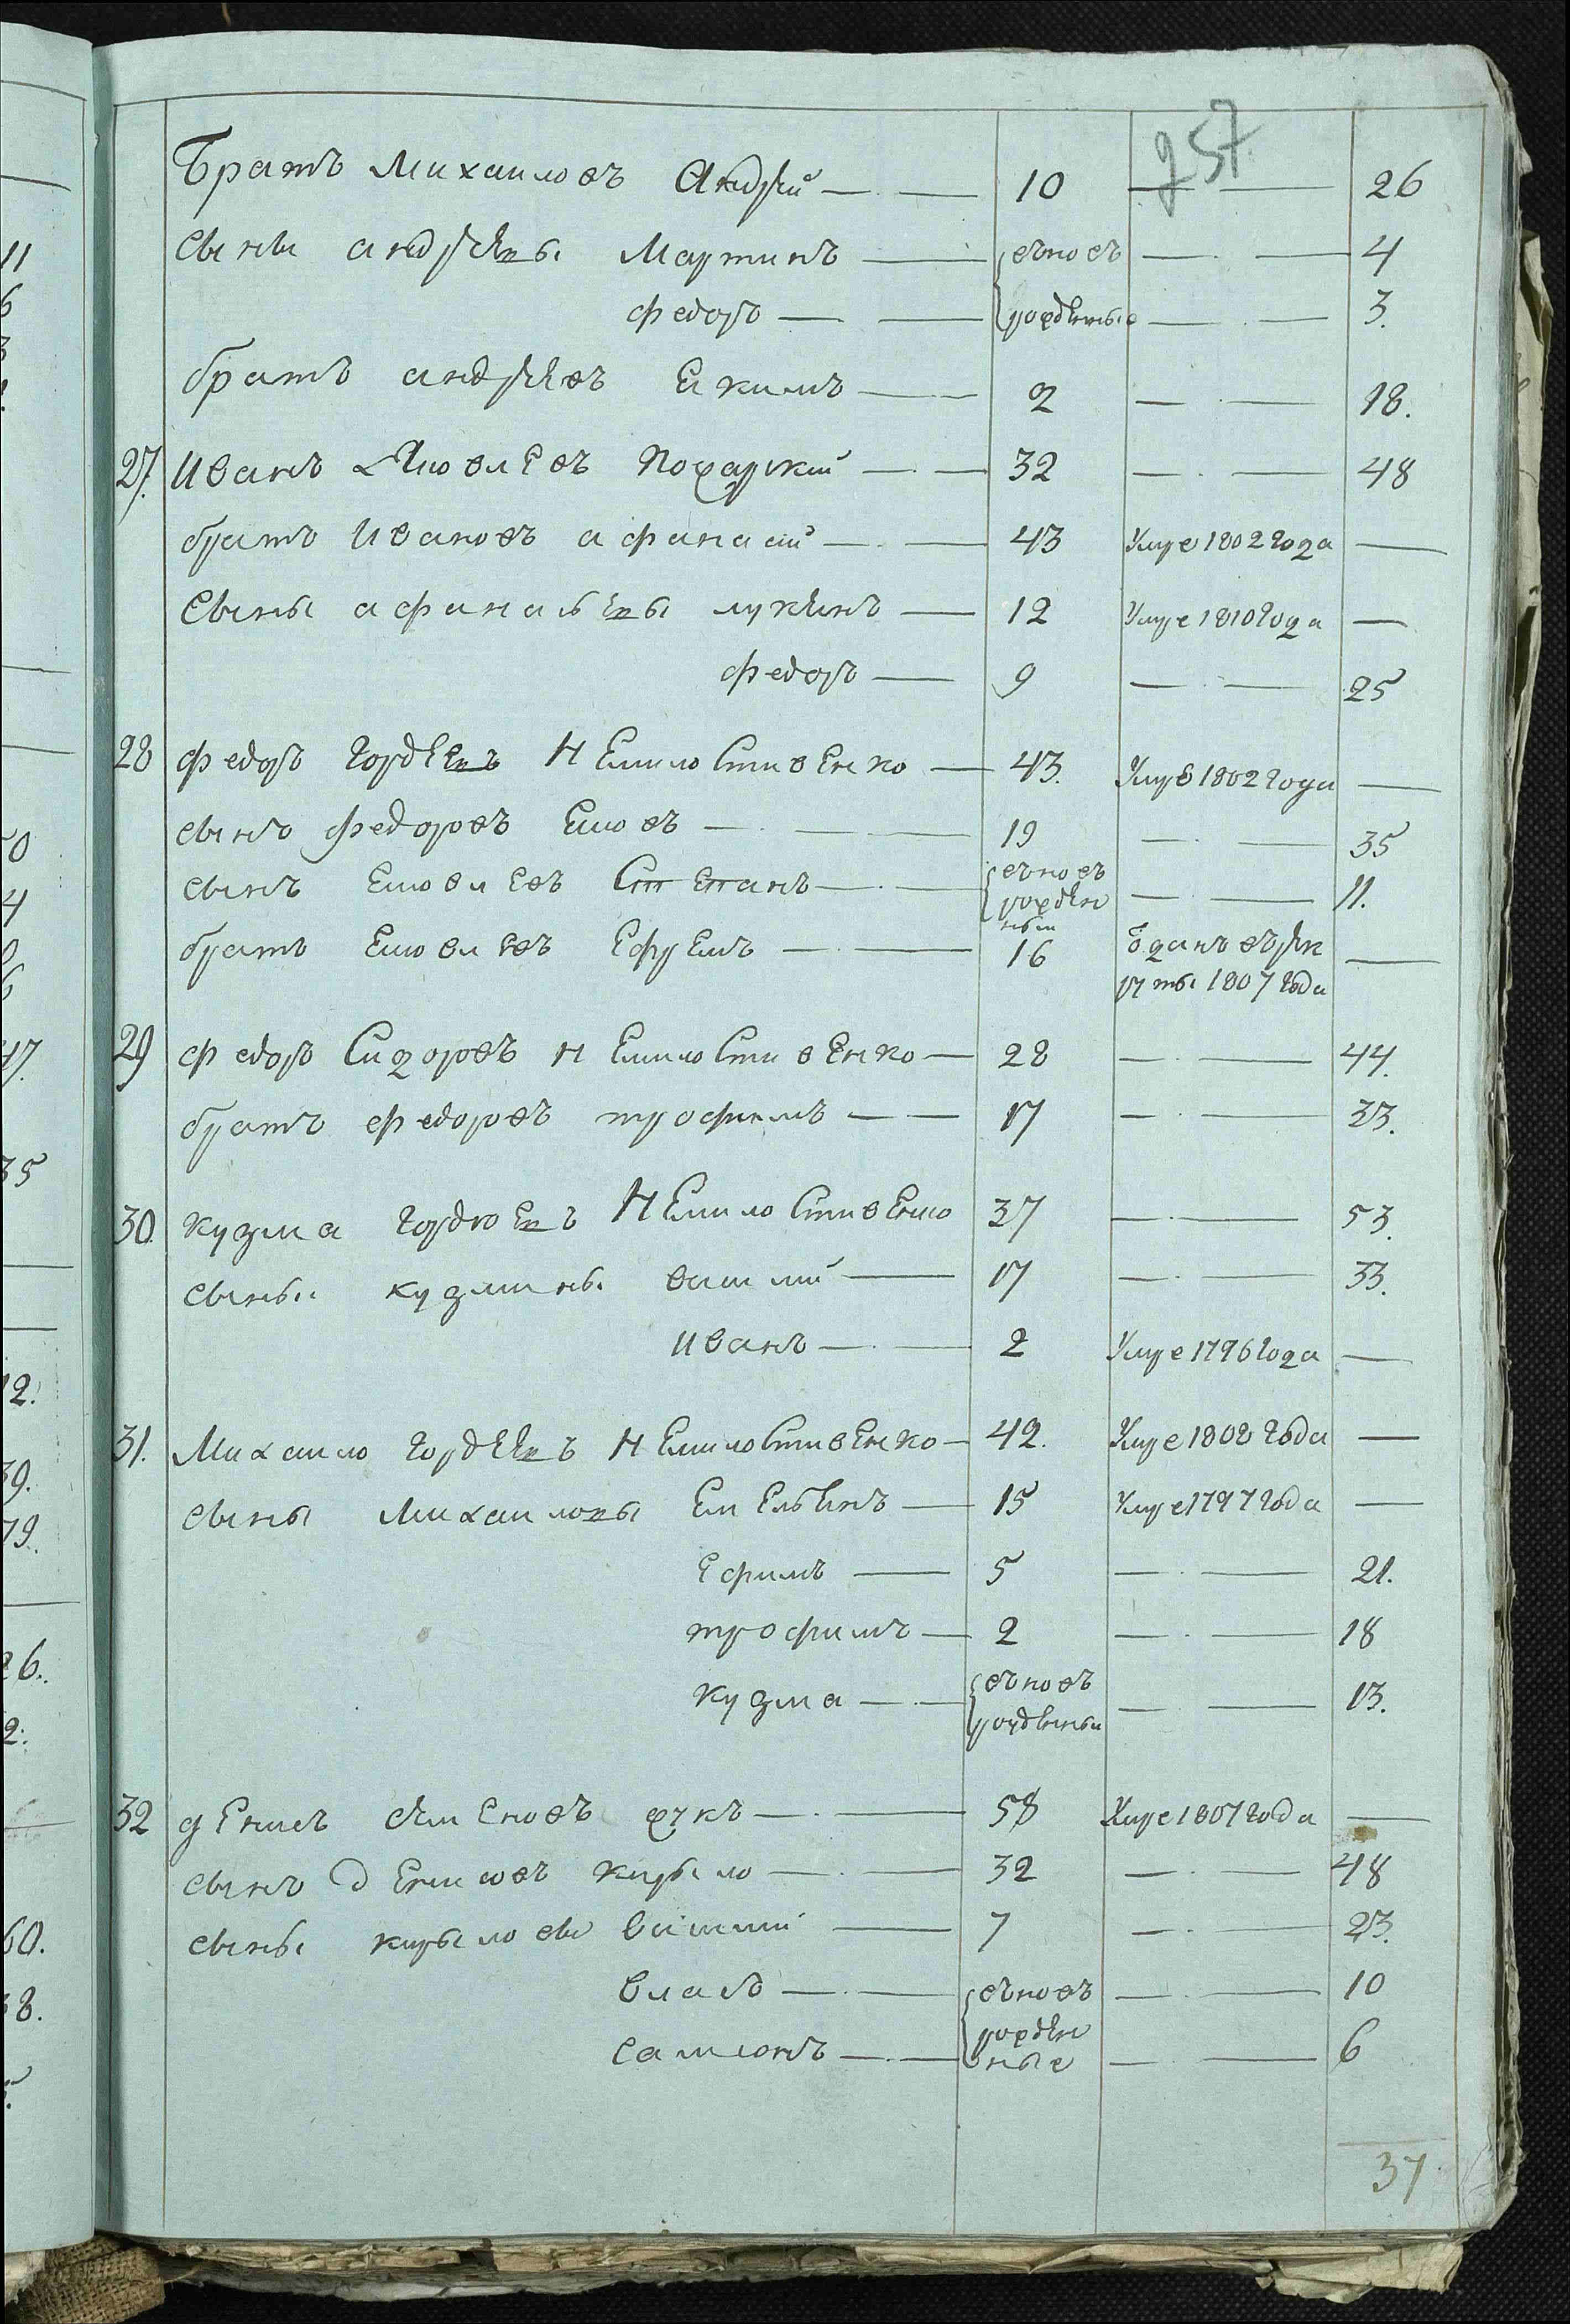 257
Братъ Михаиловъ Андрѣй — 10 — 26
Сыны андрѣевы Мартинъ — вновь — 4
федоръ — рожденные — 3.
братъ андрѣевъ Екимъ — 2 — 18.
27. Иванъ Яковлевъ пожарский — 32 — 48
братъ Ивановъ афанасий — 43 Умре 1802 года —
Сыны афанасьевы лукьянъ — 12 Умре 1810 года —
федоръ — 9 — 25
28 федоръ гордѣевъ Немилостивенко — 43. Умре 1802 года —
сынъ федоровъ Яковъ — 19 — 35
сынъ Яковлевъ Степанъ — вновь рожден ный — 11.
братъ Яковлевъ Ефремъ — 16 Зданъ врек руты 1807 года —
29 федоръ Сидоровъ Немилостивенко — 28 — 44.
братъ федоровъ трофимъ — 17 — 33.
30. кузма гордѣевъ Немилостивенко 37 — 53.
сыны кузмины василий — 17 — 33.
Иванъ — 2 Умре 1796 года —
31. Михаило гордѣевъ Немилостивенко — 42. Умре 1808 года —
сыны михаиловы Емельянъ — 15 Умре 1797 года —
Ефимъ — 5 — 21.
трофимъ — 2 — 18
кузма — вновь рожденный — 13.
32 денисъ семеновъ жукъ — 58 Умре 1807 года —
сынъ денисовъ кирыло — 32 — 48
сыны кирыловы василий — 7 — 23.
власъ — вновь — 10
самсонъ — рожден ные — 6
37
11
6
50
4
6
47.
35
12.
39.
79.
26.
2.
60.
38.